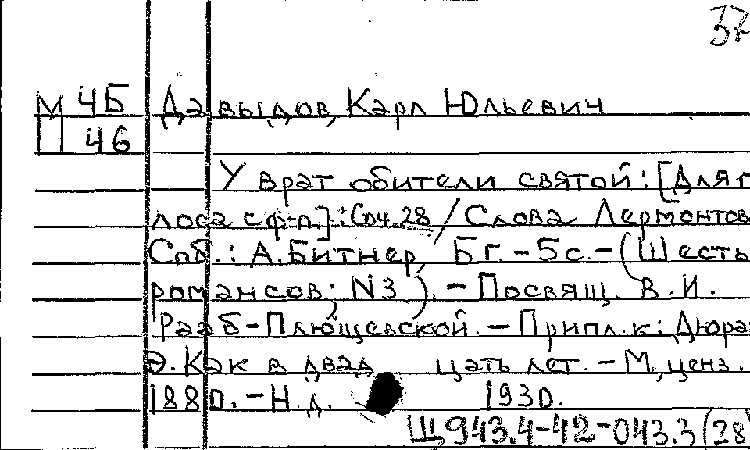 37
М 4Б Давыдов, Карл Юльевич
П 46
У врат обители святой: [Для го
лоса с ф-п.]: Соч. 28 / Слова Лермонтов
Спб.: А. Битнер, Б г. - 5 с. - (Шесть
романсов; N3). - Посвящ. В. И.
Рааб-Плющевской. - Припл. к: Дюра
Э. Как в двадцать лет. - М, ценз.
1880. - Н. д. 1930.
Щ943.4-42-043.3(28)